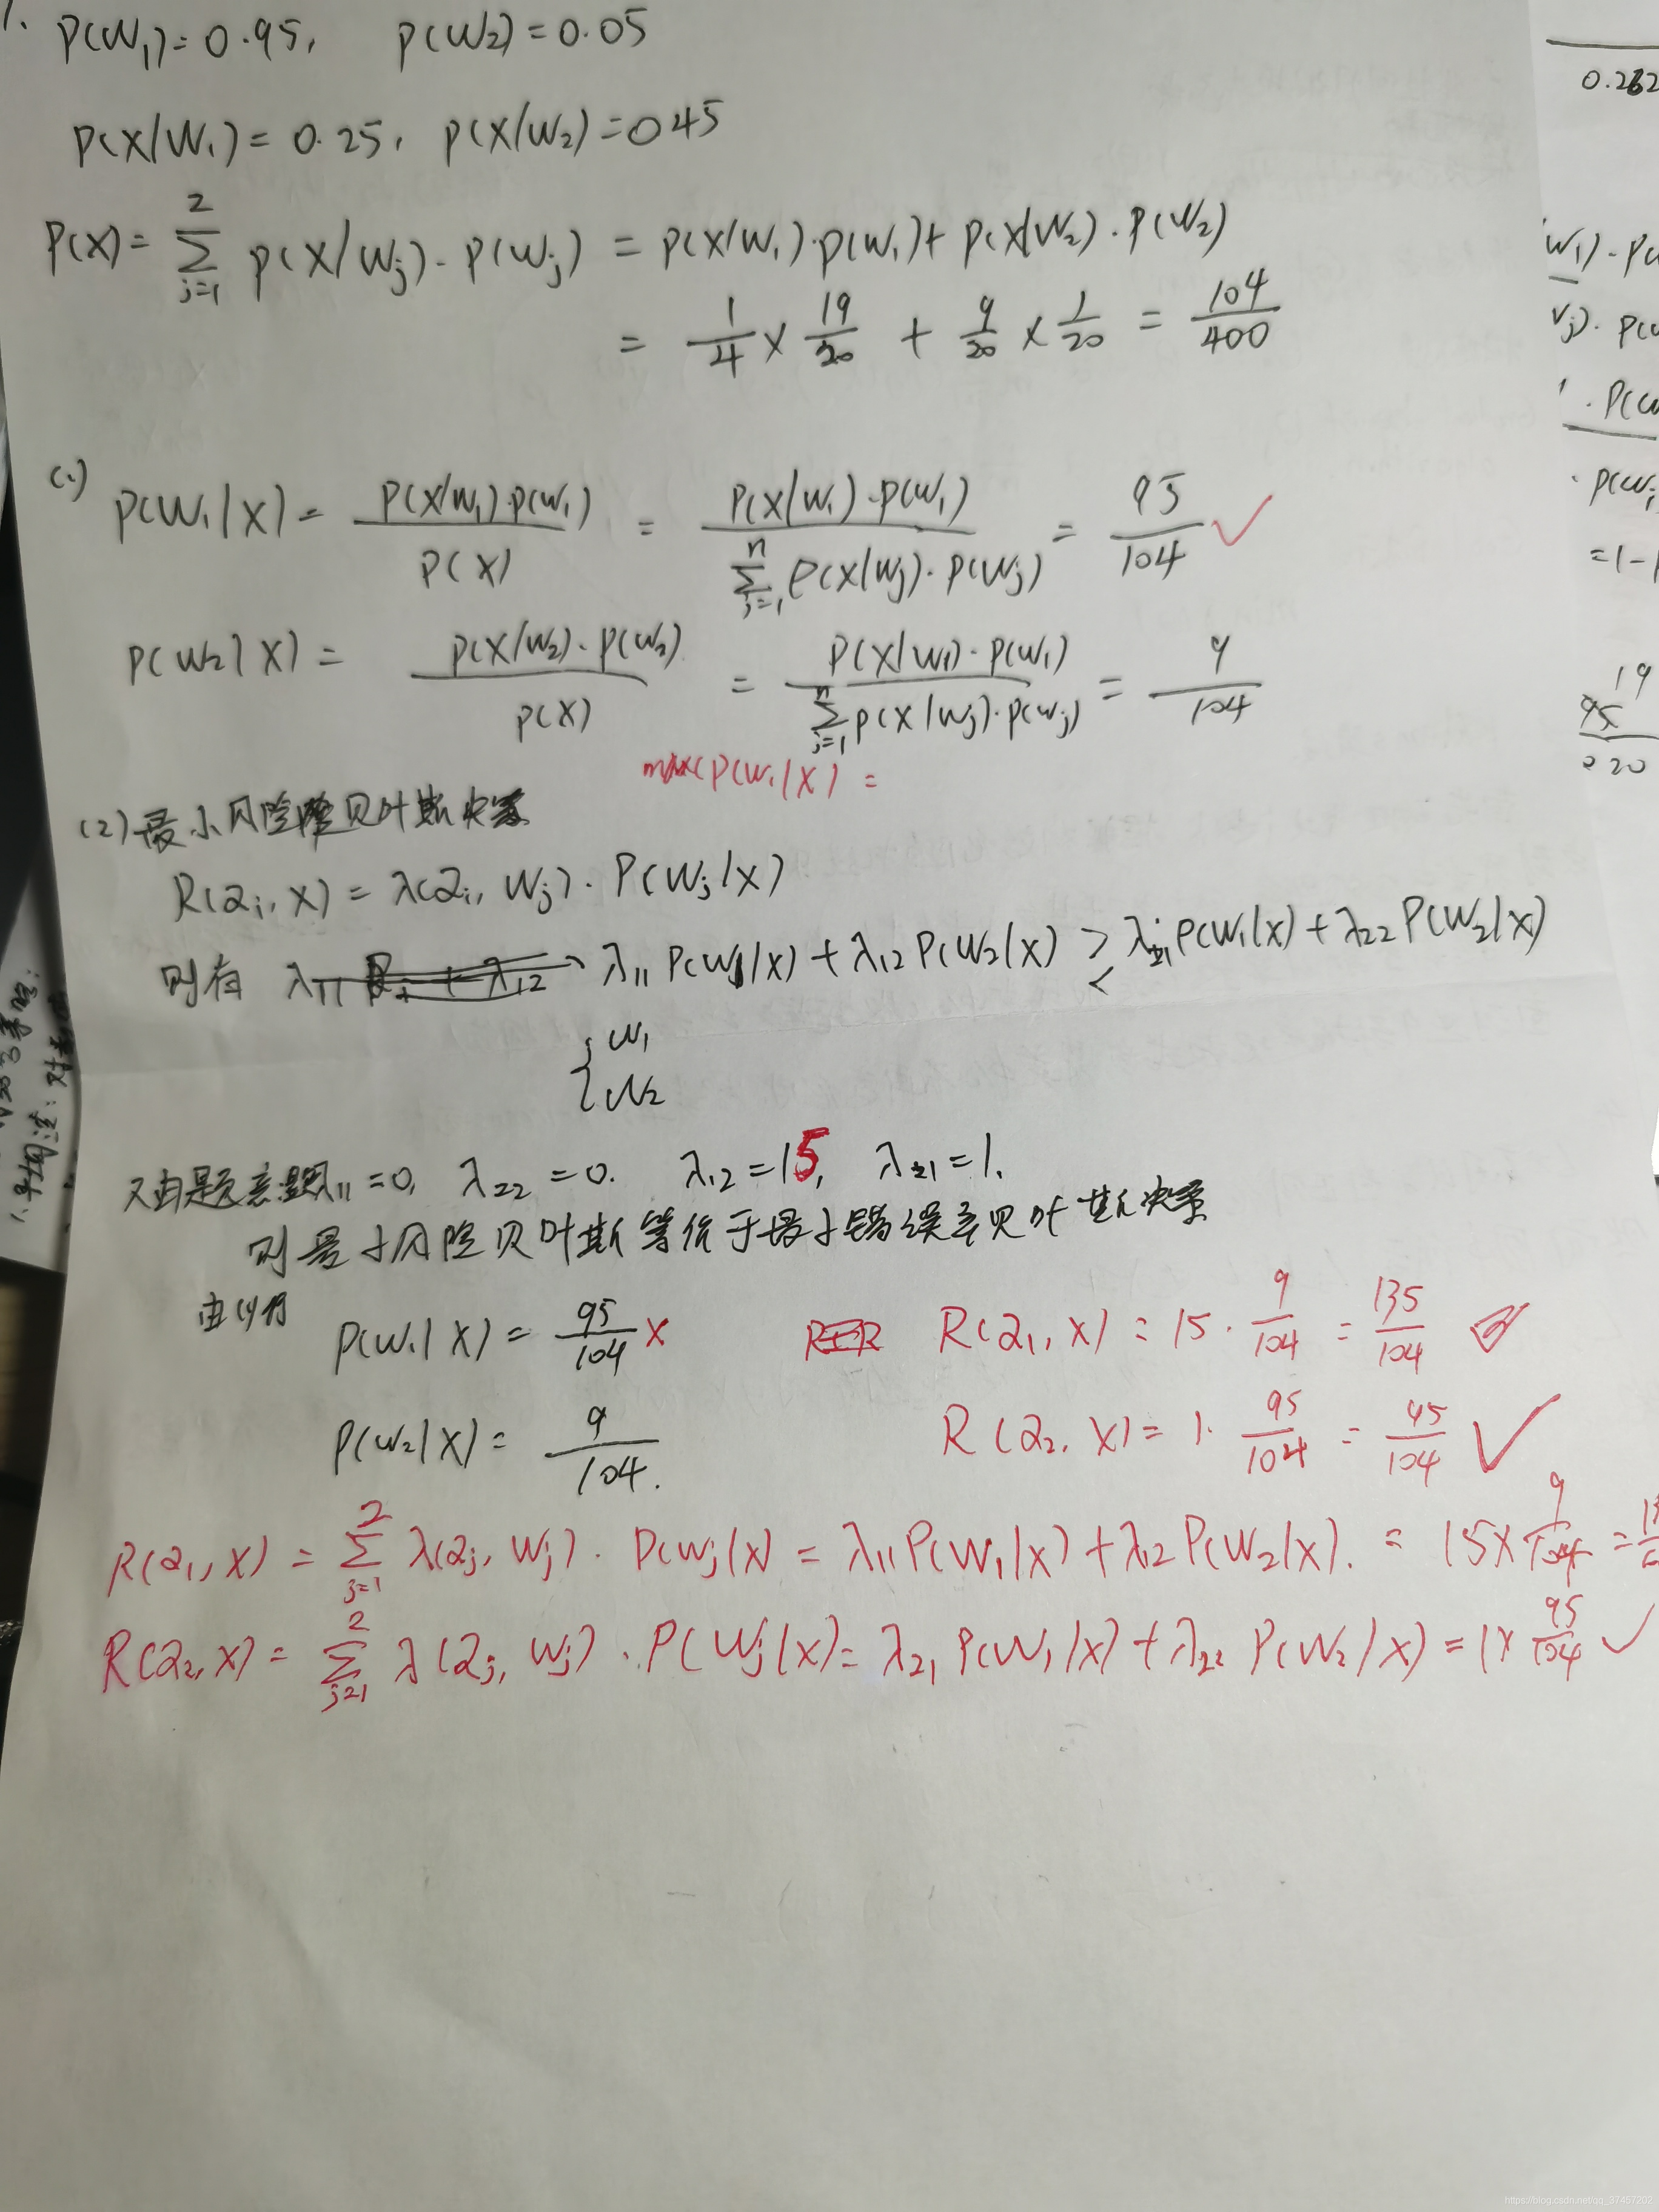 1. P(W₁)=0.95, P(W₂)=0.05
P(X/W₁)=0.25, P(X/W₂)=045
P(X)=∑_{j=1}^{2} P(X/Wj)·P(Wj) = P(X/W₁)·P(W₁)+P(X/W₂)·P(W₂)
= 1/4 × 19/20 + 9/20 × 1/20 = 104/400
(1) P(W₁/X) = P(X/W₁)·P(W₁) / P(X) = P(X/W₁)·P(W₁) / ∑_{j=1}^{n} P(X/Wj)·P(Wj) = 95/104 ✓
P(W₂/X) = P(X/W₂)·P(W₂) / P(X) = P(X/W₁)·P(W₁) / ∑_{j=1}^{n} P(X/Wj)·P(Wj) = 9/104
max(P(Wi/X) =
(2)最小风险贝叶斯决策
R(αi, X) = λ(αi, Wj)·P(Wj/X)
则有 λ₁₁P(W₁/X)+λ₁₂P(W₂/X) ≷ λ₂₁P(W₁/X)+λ₂₂P(W₂/X)
{ W₁
W₂
又由题意λ₁₁=0, λ₂₂=0. λ₁₂=15, λ₂₁=1.
则最小风险贝叶斯等价于最小错误率贝叶斯决策
由(1)得
P(W₁/X) = 95/104 × R(α₁, X) = 15·9/104 = 135/104
P(W₂/X) = 9/104. R(α₂, X) = 1·95/104 = 95/104 ✓
R(α₁, X) = ∑_{j=1}^{2} λ(αj, Wj)·P(Wj/X) = λ₁₁P(W₁/X)+λ₁₂P(W₂/X). = 15×9/104 =
R(α₂, X) = ∑_{j=1}^{2} λ(αj, Wj)·P(Wj/X) = λ₂₁P(W₁/X)+λ₂₂P(W₂/X) = 1×95/104 ✓
0.262
W₁)·P(
Vj)·P(
·P(
·P(Wj
=1-
19
95
0.20
https://blog.csdn.net/qq_37457202